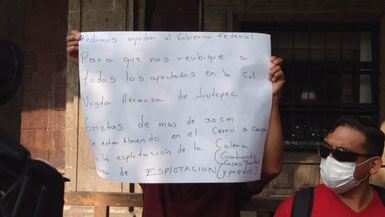 Pedimos ayuda al Gobierno Federal
Para que nos reubique a
todos los afectados en la Col
Vista Hermosa de Jiutepec
Grietas de mas de 30 cm
se estan abriendo en el Cerro a Causa
de la esplotación de la Calera
(Cuarteando
Casas
de ESPLOTACION y predios)